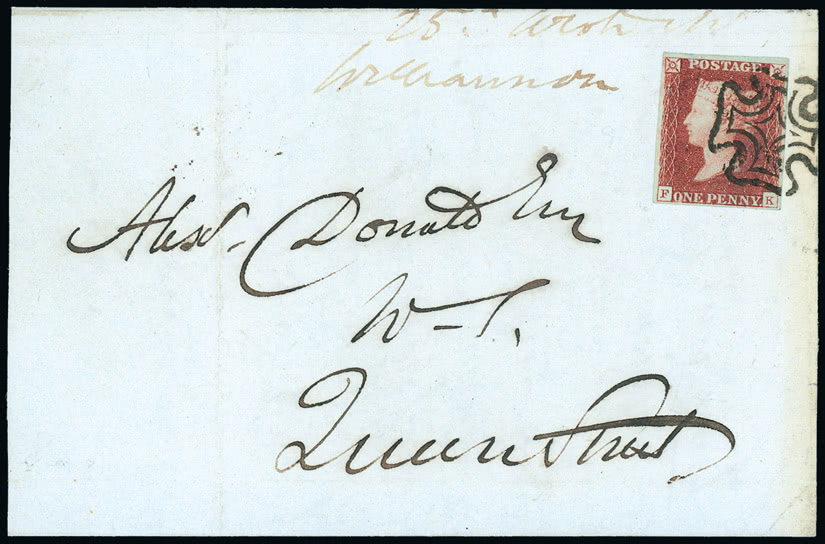 25th
POSTAGE
Alexr. Donald Esq
W. S.
F ONE PENNY K
Queen Street